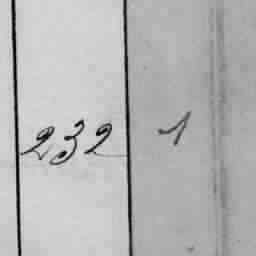 232 1